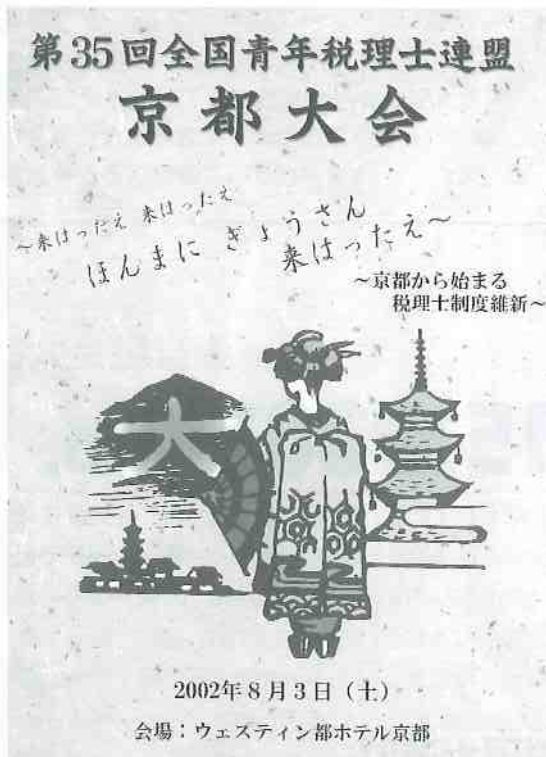 第35回全国青年税理士連盟
京都大会
～来はったえ 来はったえ
ほんまに ぎょうさん
来はったえ～
～京都から始まる
税理士制度維新～
大
2002年8月3日(土)
会場：ウェスティン都ホテル京都